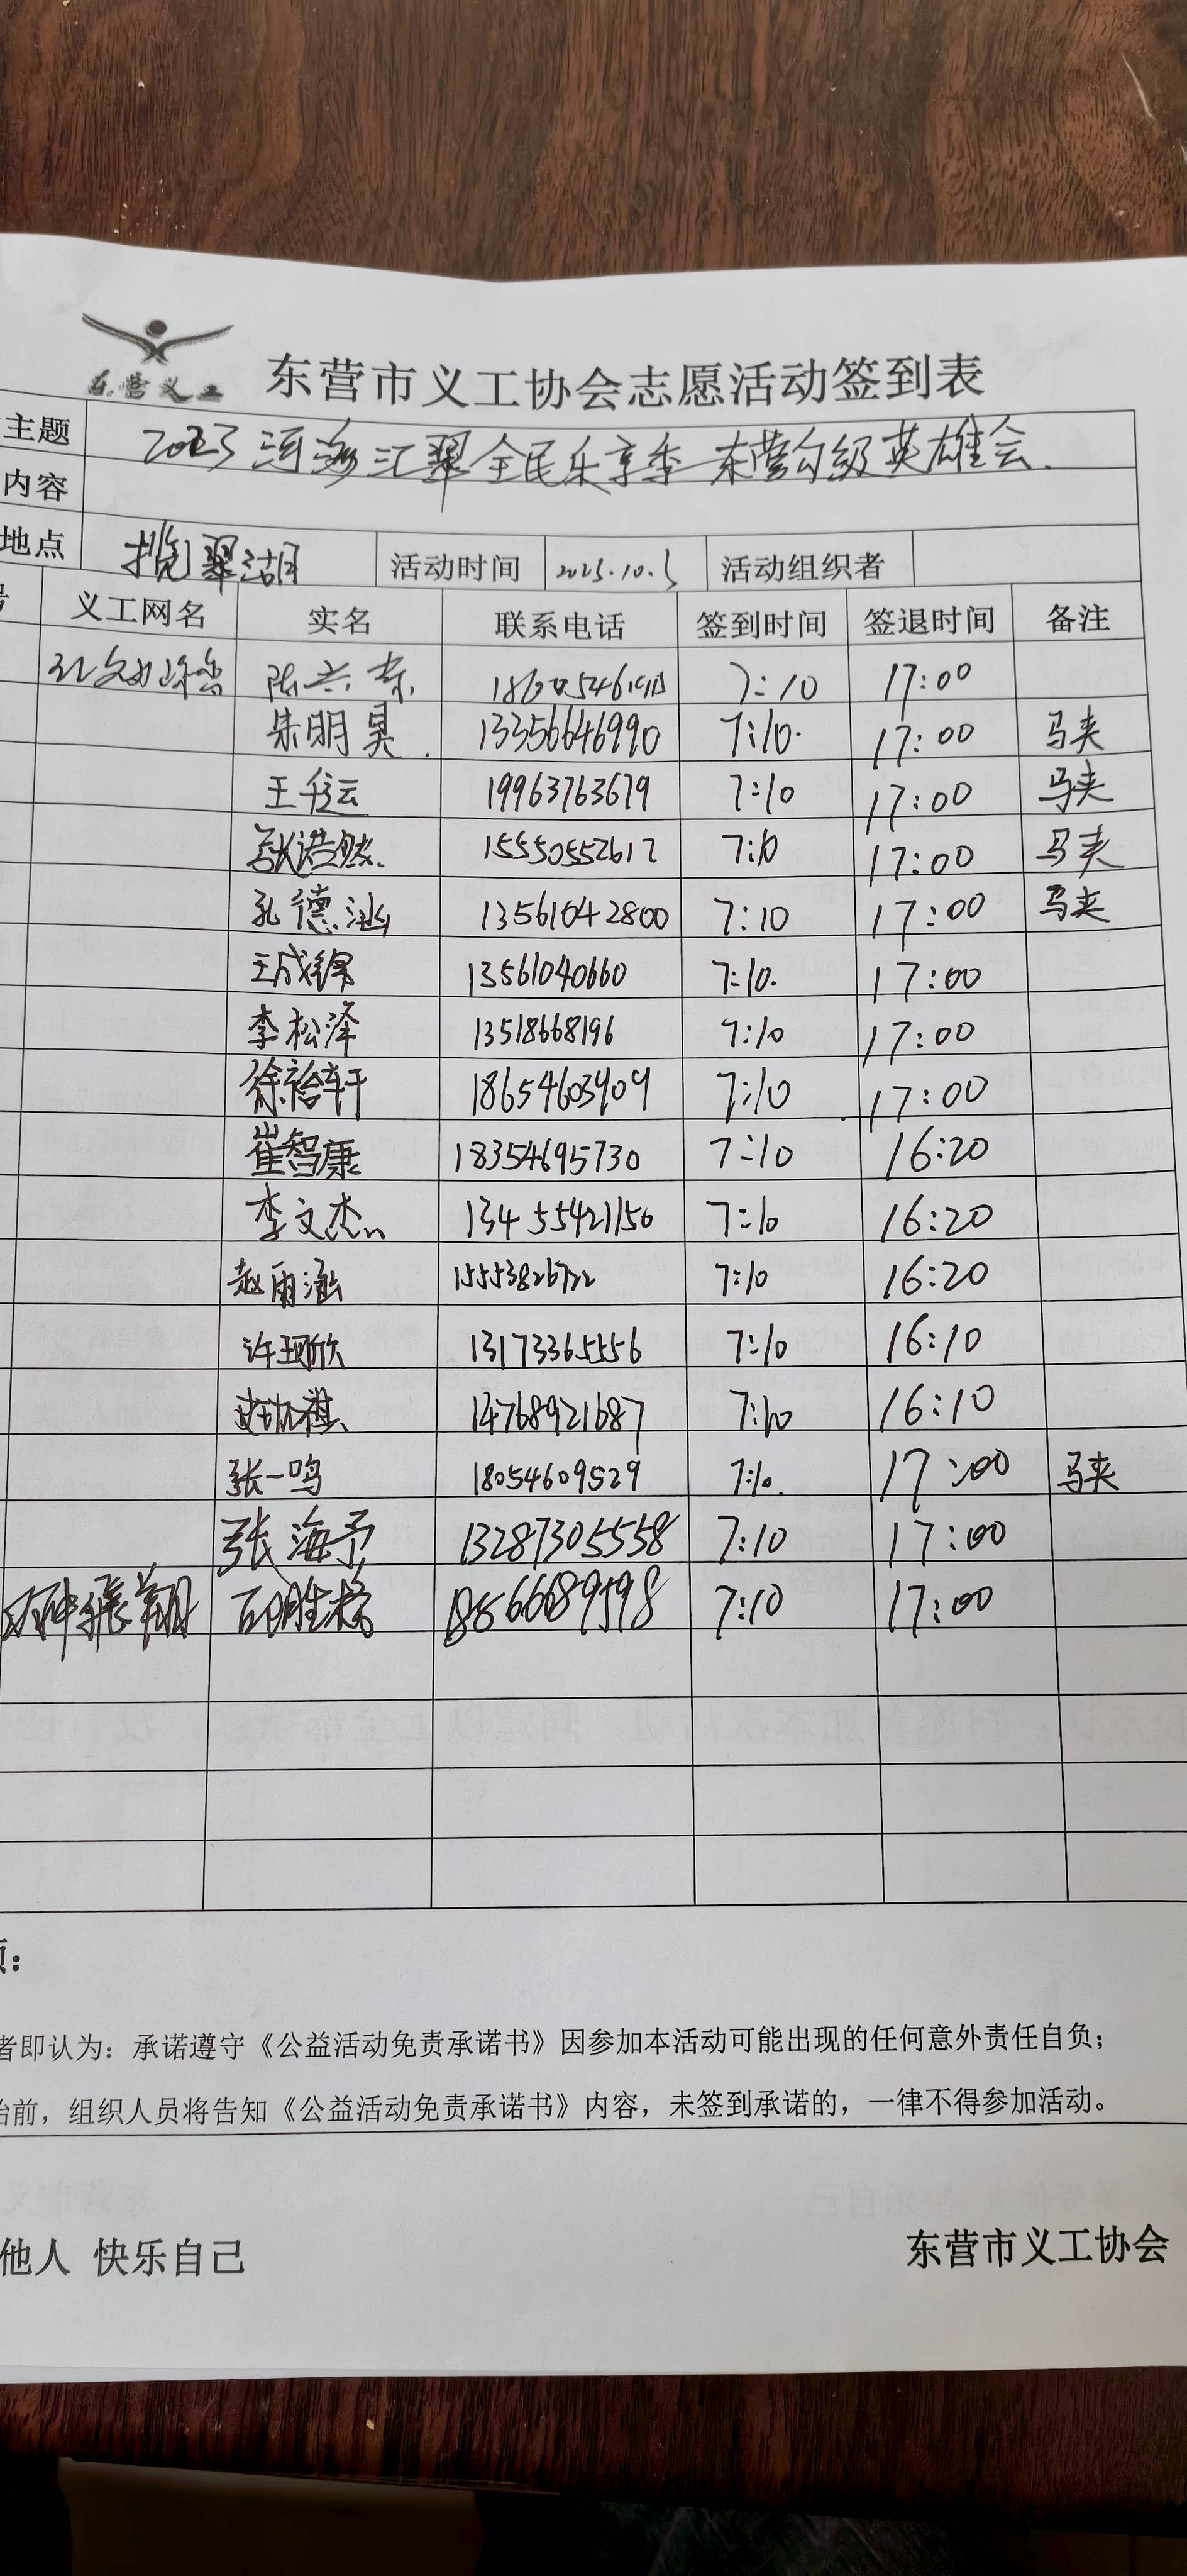 东营义工
东营市义工协会志愿活动签到表
主题 2023河海汇翠全民乐享季 东营勾级英雄会
内容
地点 揽翠湖 活动时间 2023.10.5 活动组织者
号 义工网名 实名 联系电话 签到时间 签退时间 备注
7:10 17:00
朱明昊 13356646990 7:10 17:00 马夹
王 19963763679 7:10 17:00 马夹
浩然 15550552612 7:10 17:00 马夹
孔德涵 13561042800 7:10 17:00 马夹
王成 13561040660 7:10 17:00
李松泽 13518668196 7:10 17:00
徐裕轩 18654603909 7:10 17:00
崔智康 18354695730 7:10 16:20
李文杰 13455421156 7:10 16:20
赵雨涵 15553826722 7:10 16:20
许珂欣 13173365556 7:10 16:10
14768921687 7:10 16:10
张一鸣 18054609529 7:10 17:00 马夹
张海予 13287305558 7:10 17:00
7:10 17:00
项：
者即认为：承诺遵守《公益活动免责承诺书》因参加本活动可能出现的任何意外责任自负；
始前，组织人员将告知《公益活动免责承诺书》内容，未签到承诺的，一律不得参加活动。
他人 快乐自己 东营市义工协会